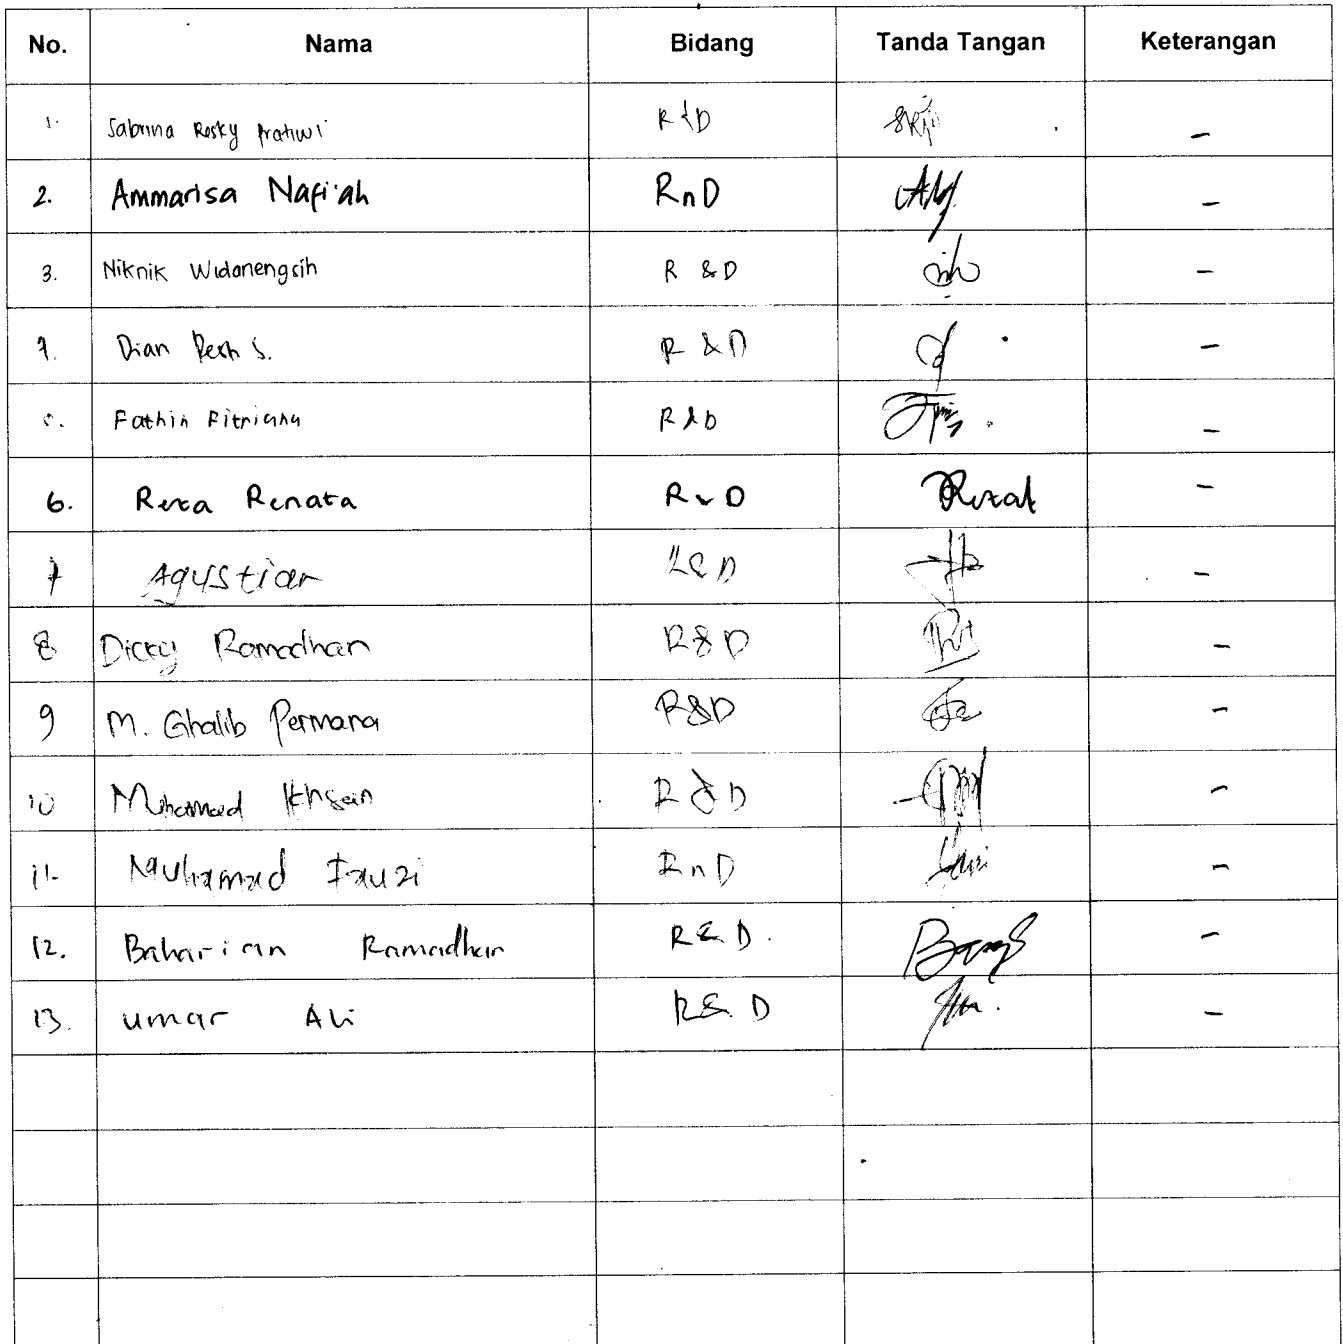 No. Nama Bidang Tanda Tangan Keterangan
1. Sabrina Rosky Pratiwi R&D -
2. Ammarisa Nafi'ah RnD -
3. Niknik Widanengsih R &D -
4. Dian S. R & D -
5. Fathin Fitriana R&D -
6. Reza Renata R D Rezat -
7 Agustiar R&D -
8 Dicky Ramadhan R&D -
9 M. Ghalib Permana R&D -
10 Muhamad Ikhsan R & D -
11. Muhamad Fauzi RnD -
12. Baharian Ramadhan R&D. -
13. umar Ali R& D -